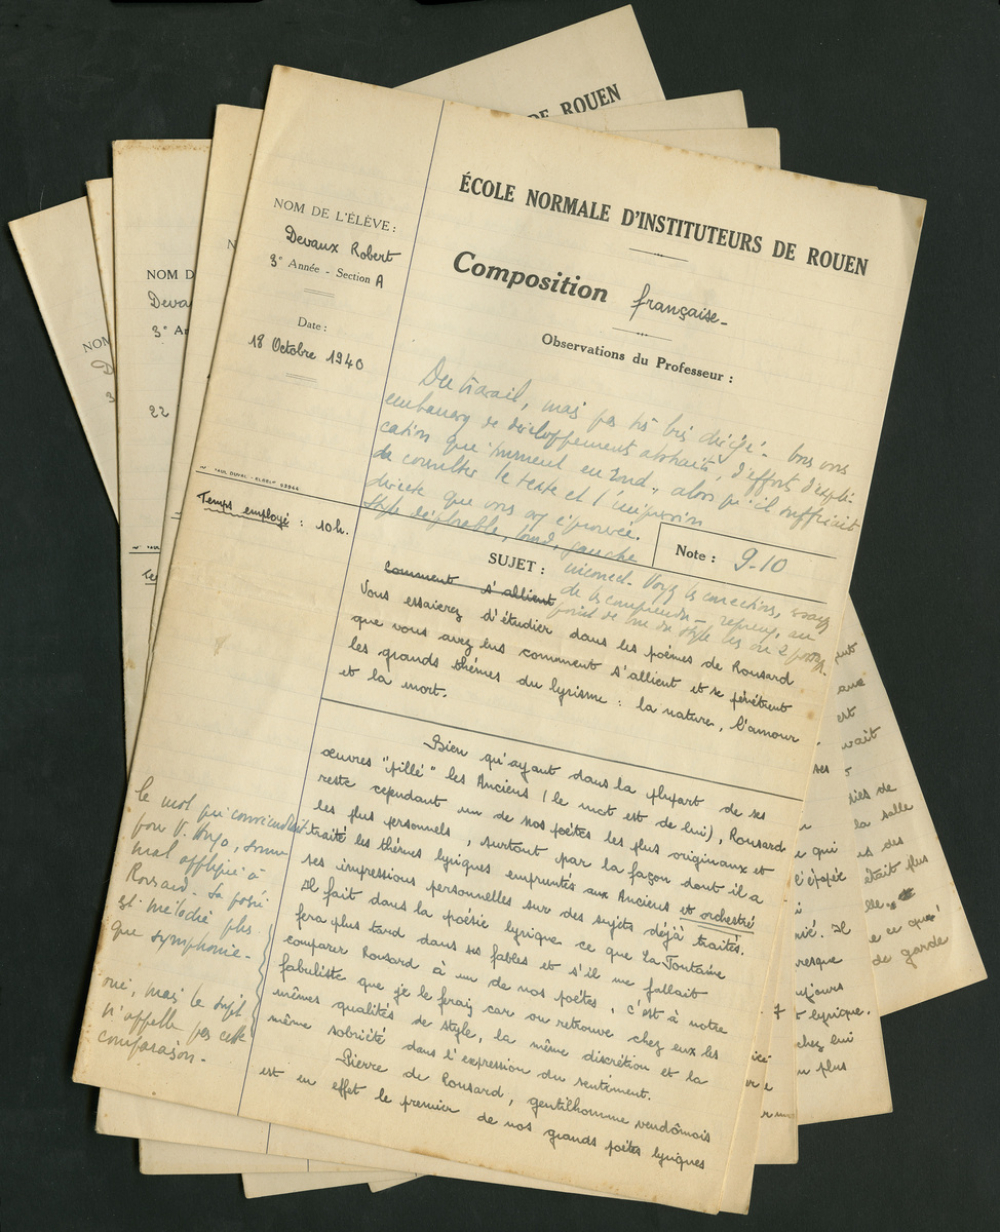 DE ROUEN
ÉCOLE NORMALE D'INSTITUTEURS DE ROUEN
NOM DE L'ÉLÈVE :
Devaux Robert
3e Année - Section A
Date :
18 Octobre 1940
Composition française_
Observations du Professeur :
Du travail, mais pas très bien dirigé. Vous vous
embarrassez de développements abstraits, d'efforts d'expli-
cation que inventent en rond, alors qu'il suffirait
de consulter le texte et l'impression
directe que vous avez éprouvée.
Style déplorable, lourd, gauche
incorrect. Voyez les corrections, essayez
de les comprendre - reprenez, au
point de vue du style les ou 2 pages.
Temps employé : 10h.
Note : 9-10
SUJET :
Comment s'allient
Vous essaierez d'étudier dans les poèmes de Ronsard
que vous avez lus comment s'allient et se pénètrent
les grands thèmes du lyrisme : la nature, l'amour
et la mort.
Bien qu'ayant dans la plupart de ses
œuvres "pillé" les Anciens (le mot est de lui), Ronsard
reste cependant un de nos poètes les plus originaux et
les plus personnels, surtout par la façon dont il a
traité les thèmes lyriques empruntés aux Anciens et orchestré
ses impressions personnelles sur des sujets déjà traités.
Il fait dans la poésie lyrique ce que La Fontaine
fera plus tard dans ses fables et s'il me fallait
comparer Ronsard à un de nos poètes, c'est à notre
fabuliste que je le ferais car on retrouve chez eux les
mêmes qualités de style, la même discrétion et la
même sobriété dans l'expression du sentiment.
Pierre de Ronsard, gentilhomme vendômois
est en effet le premier de nos grands poètes lyriques
le mot qui conviendrait
pour V. Hugo, sonne
mal appliqué à
Ronsard. Sa poésie
est mélodie plus
que symphonie.
oui, mais le sujet
n'appelle pas cette
comparaison.
NOM D
Deva
3e An
22
NOM
D
3
Te
est
vait
ses
la salle
était plus
de garde
qui
l'épopée
Il
resque
lyrique.
chez lui
plus